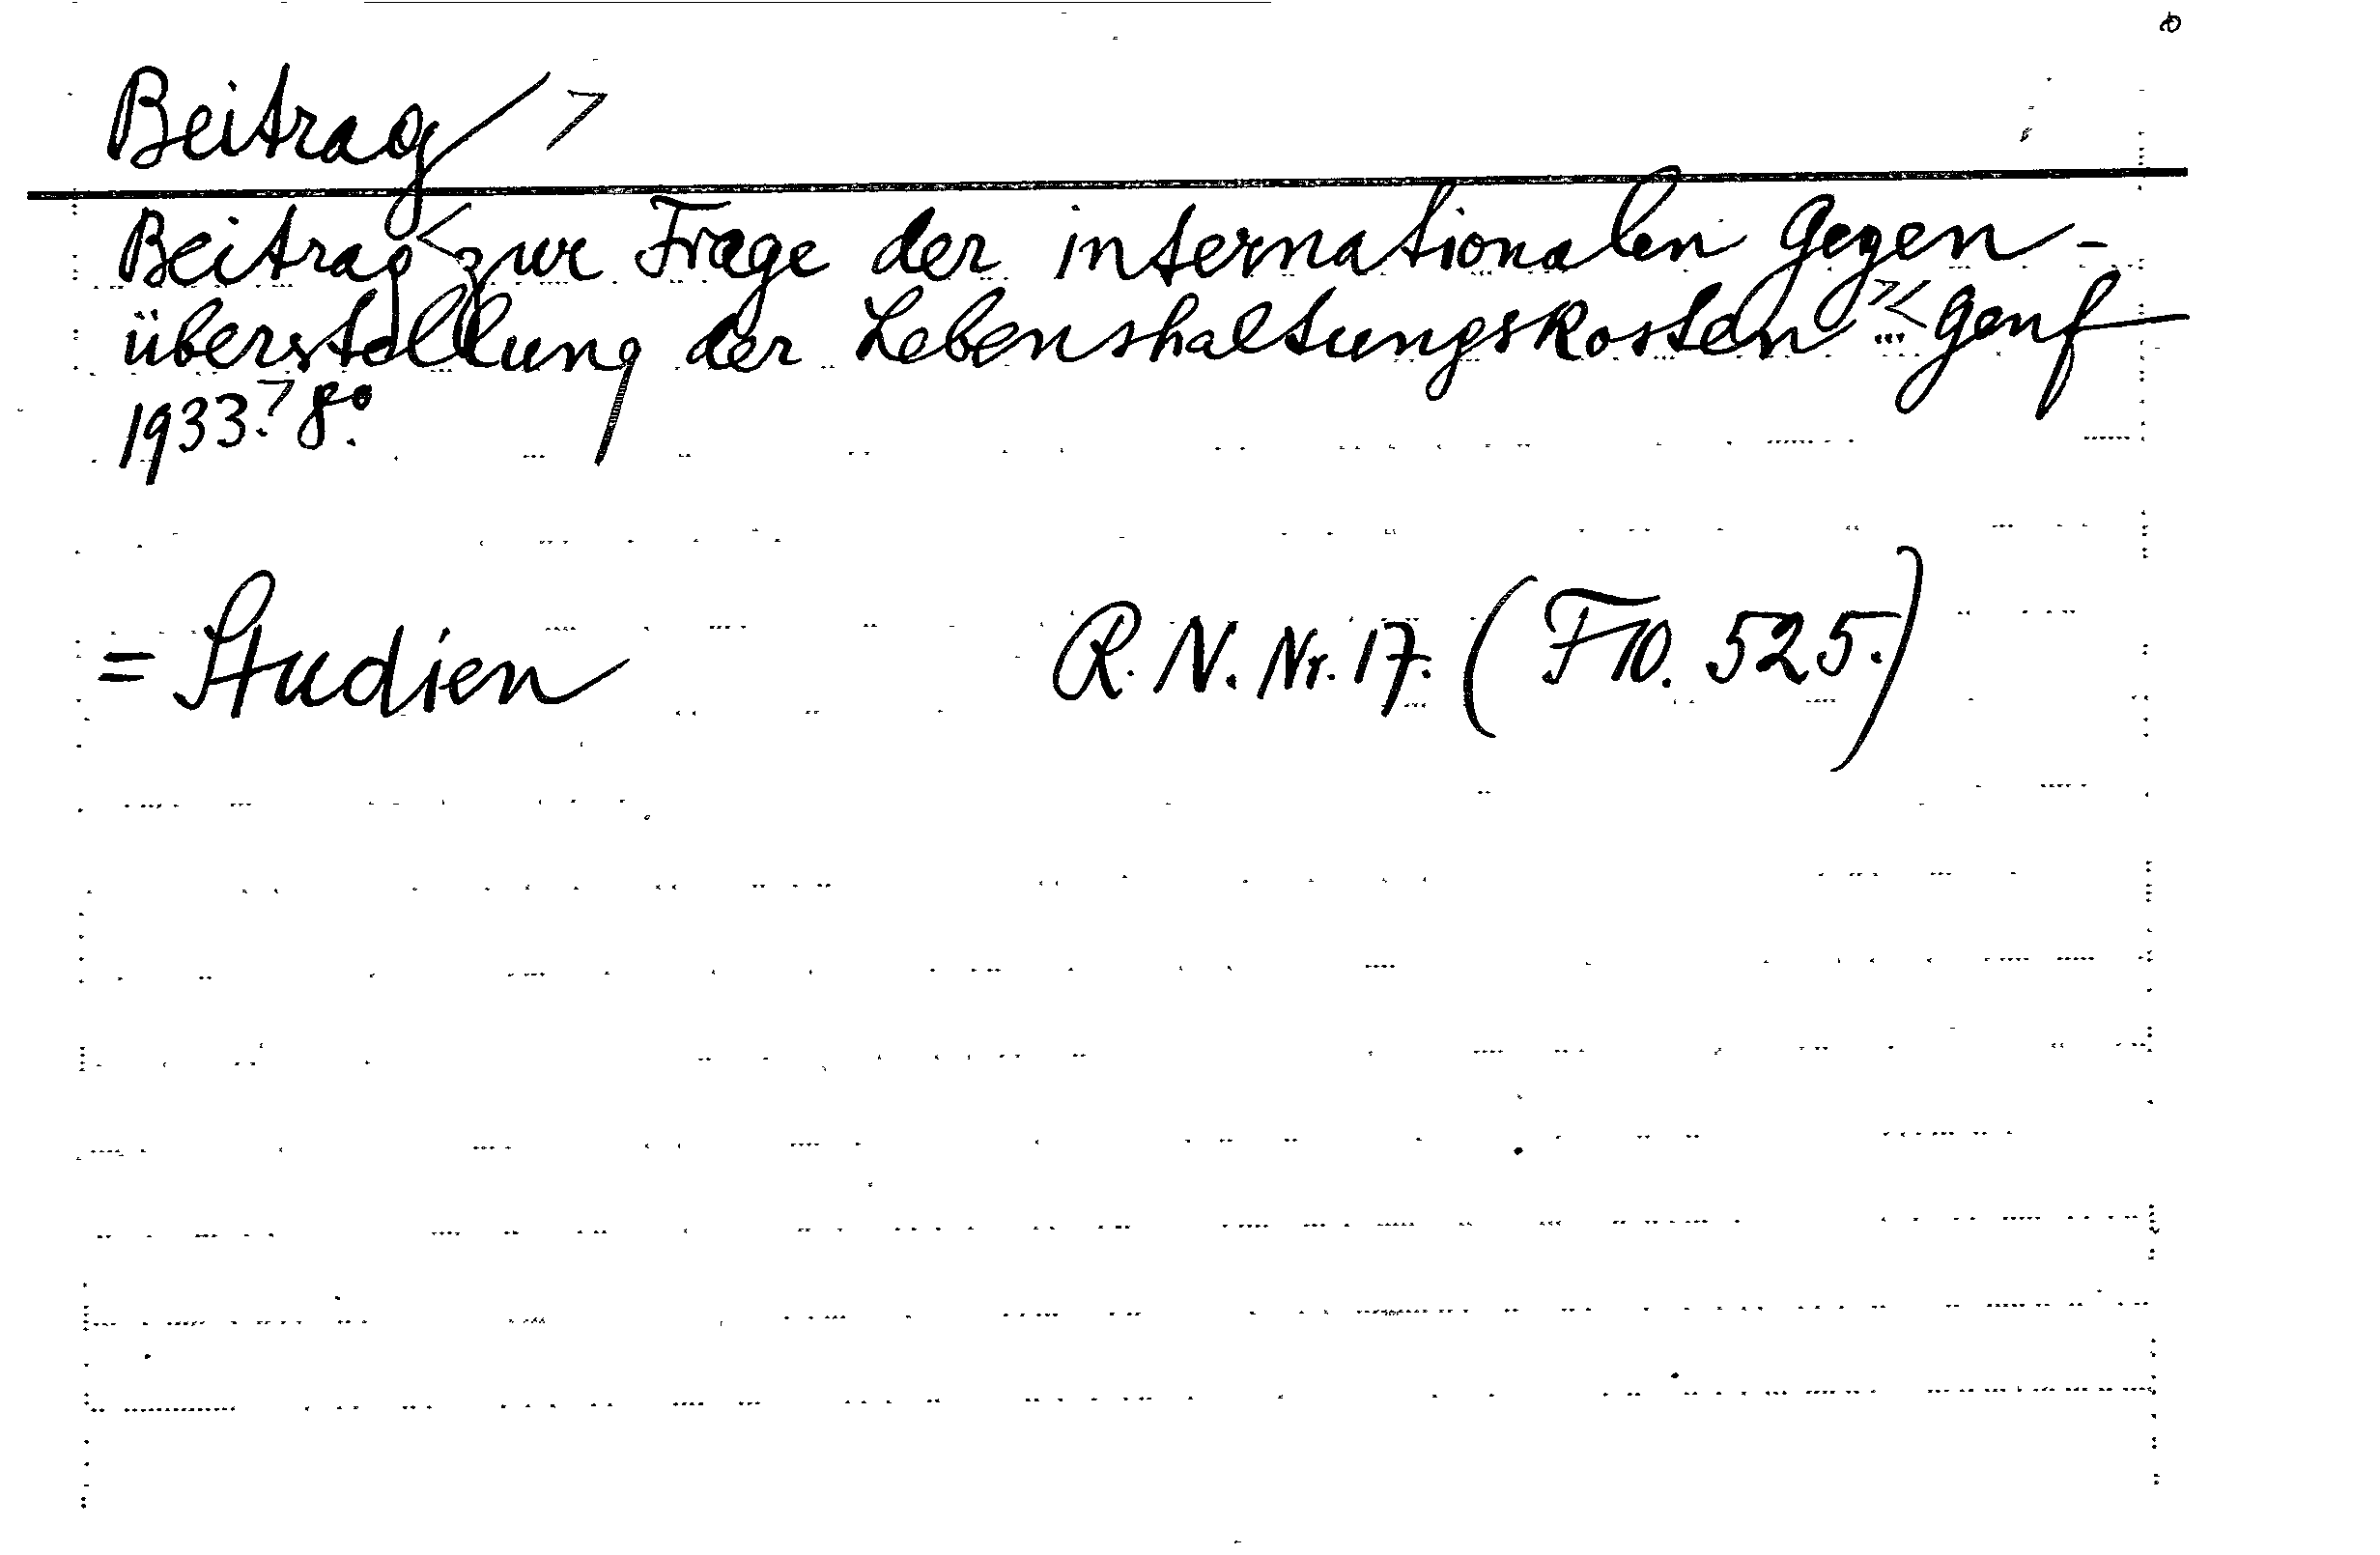 Beitrag >
Beitrag < zur Frage der internationalen Gegen-
überstellung der Lebenshaltungskosten >< Genf
1933.> 8°.
= Studien R. N. Nr. 17. (F10. 525.)